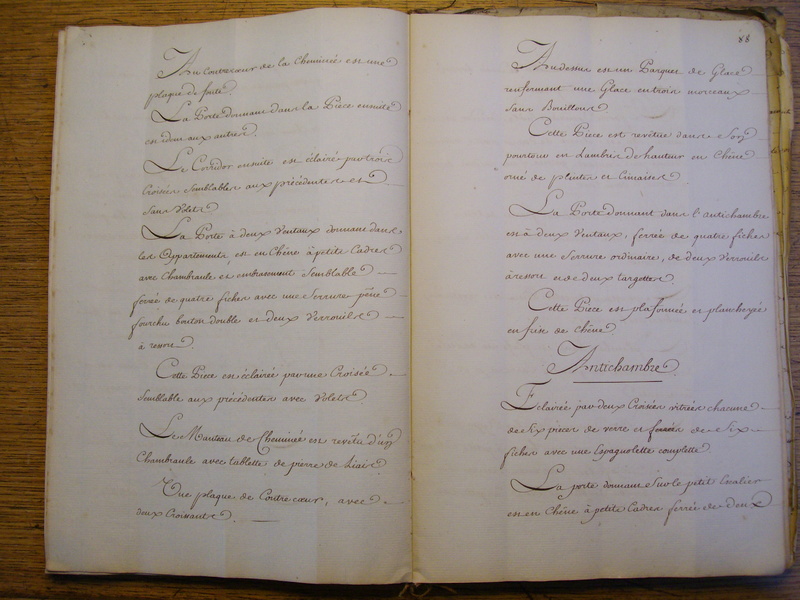 Au contrecœur de la Cheminée est une
plaque de fonte.
La Porte donnant dans la Piece ensuite
est idem aux autres.
Le Corridor ensuite est éclairé par trois
Croisées semblables aux précédentes et
sans Volets.
La Porte à deux Ventaux donnant dans
les Appartements est en Chêne à petits Cadres
avec Chambranle et embrasement semblable
ferrée de quatre fiches avec une Serrure pêne
fourchu bouton double et deux Verrouils
à ressort.
Cette Piece est éclairée par une Croisée
semblable aux précédentes avec Volets.
Le Manteau de Cheminée est revêtu d'un
Chambranle avec tablette de pierre de Liais
Une plaque de Contrecœur, avec
deux Croissants.
88
Au dessus est un Parquet de Glace
renfermant une Glace en trois morceaux
sans Bouillons.
Cette Piece est revêtue dans son
pourtour en Lambris de hauteur en Chêne
orné de plintes et Cimaises.
La Porte donnant dans l'antichambre
est à deux Ventaux, ferrée de quatre fiches
avec une Serrure ordinaire, de deux Verrouils
à ressort et de deux targettes.
Cette Piece est plafonnée et plancheyée
en fris de chêne.
Antichambre
Eclairée par deux Croisées vitrées chacune
de six pieces de verre et ferrées de six
fiches avec une Espagnolette complette.
La porte donnant sur le petit Escalier
est en Chêne à petits Cadres ferrée de deux